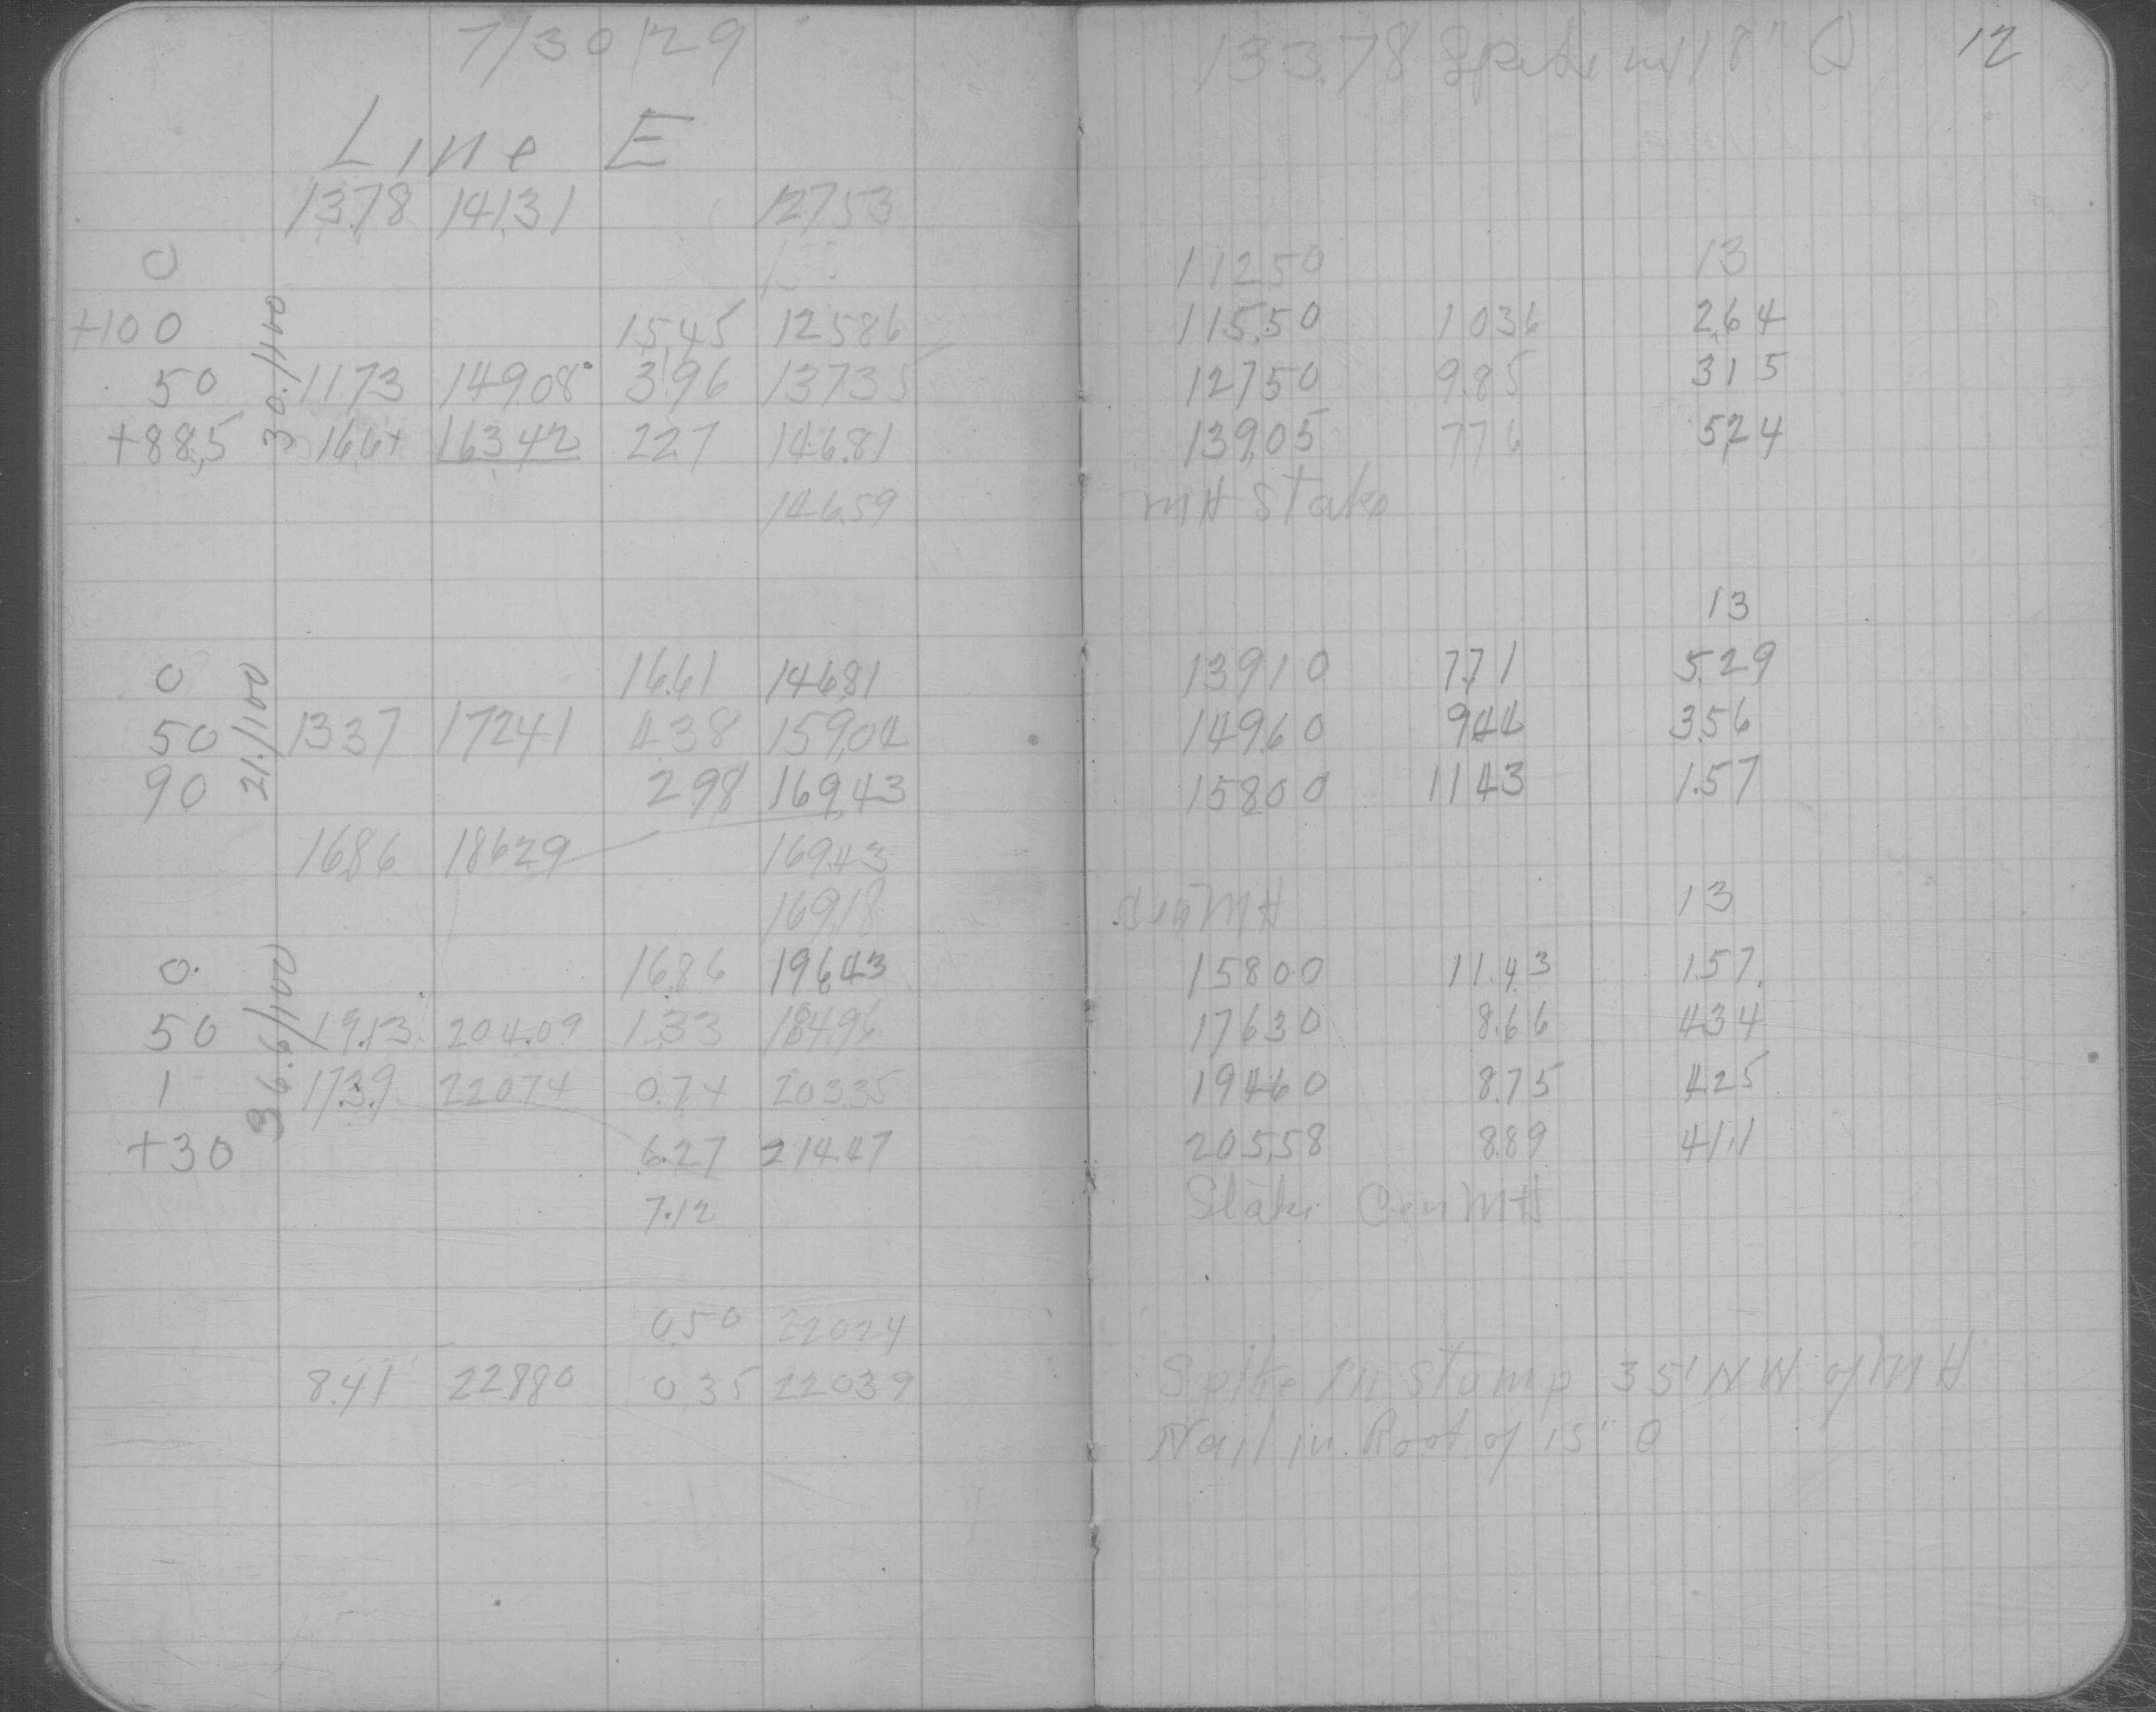 7/30/29
133.78 Spike in 18" O
12
Line E
13.78 141.31 127.53
0 112.50 13
+100 15.45 125.86 115.50 10.36 2.64
50 11.73 149.08 3.96 137.35 127.50 9.85 3.15
+88.5 16.61 163.42 2.27 146.81 139.05 7.76 5.24
30.1/100
146.59 MH Stake
13
0 16.61 146.81 139.10 7.71 5.29
50 13.37 172.41 4.38 159.04 149.60 9.44 3.56
90 2.98 169.43 158.00 11.43 1.57
21./100
16.86 186.29 169.43
169.18 MH 13
0 16.86 196.43 158.00 11.43 1.57
50 19.13 204.09 1.33 184.96 176.30 8.66 4.34
1 17.39 220.74 0.74 203.35 194.60 8.75 4.25
+30 6.27 214.47 205.58 8.89 4.11
36.6/100
7.12 Stake Cen MH
0.50 220.24
8.41 228.80 0.35 220.39 Spike in Stump 35' NW of MH
Nail in Root of 15" O